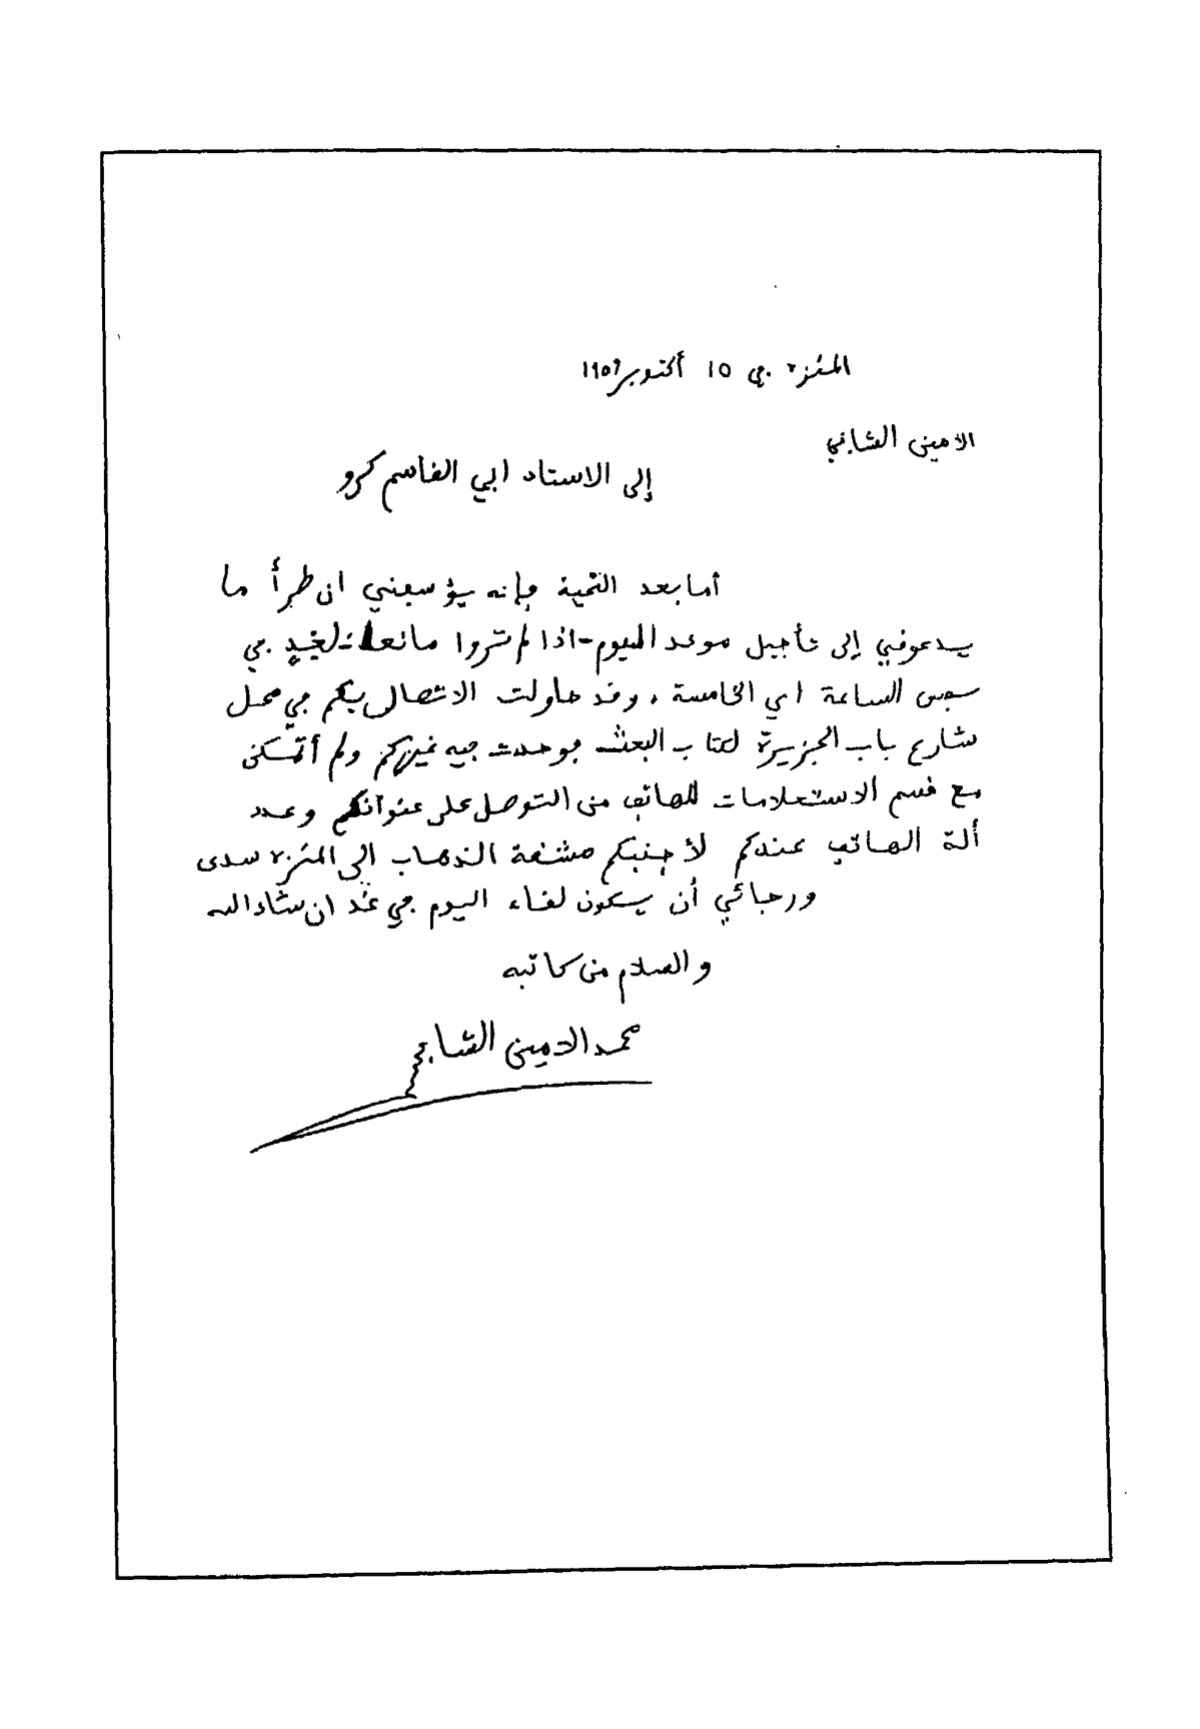 المنزه في 15 أكتوبر 1959
الامين الشابي
إلى الاستاد ابي القاسم كرو
أما بعد التحية فإنه يؤسفني ان طرأ ما
يدعوني إلى تأجيل موعد اليوم - اذا لم تروا مانعا - لغدٍ في
نفس الساعة اي الخامسة ، وقد حاولت الاتصال بكم في محل
شارع باب الجزيرة لكتاب البعث فوجدت فيه غيركم ولم أتمكن
مع قسم الاستعلامات للهاتف من التوصل على عنوانكم وعدد
ألة الهاتف عندكم لأجنبكم مشقة الذهاب الى المنزه سدى
ورجائي أن يكون لقاء اليوم في غد ان شاء الله
والسلام من كاتبه
محمد الامين الشابي